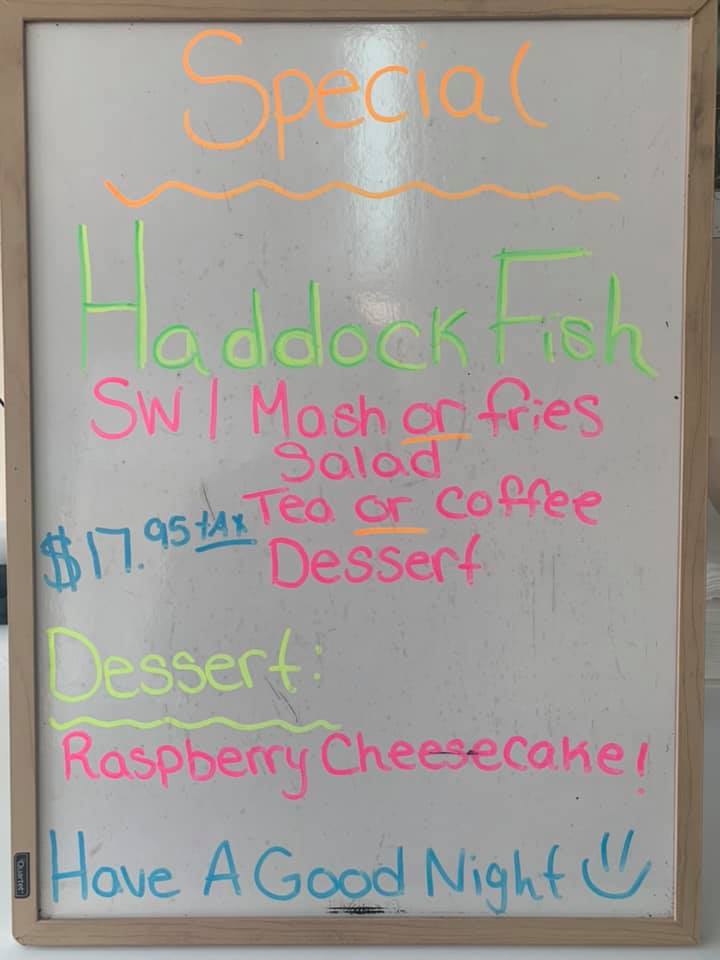 Special
Haddock Fish
SW / Mash or fries
Salad
Tea or Coffee
$17.95 +tAx
Dessert
Dessert:
Raspberry Cheesecake!
Have A Good Night
Quartet